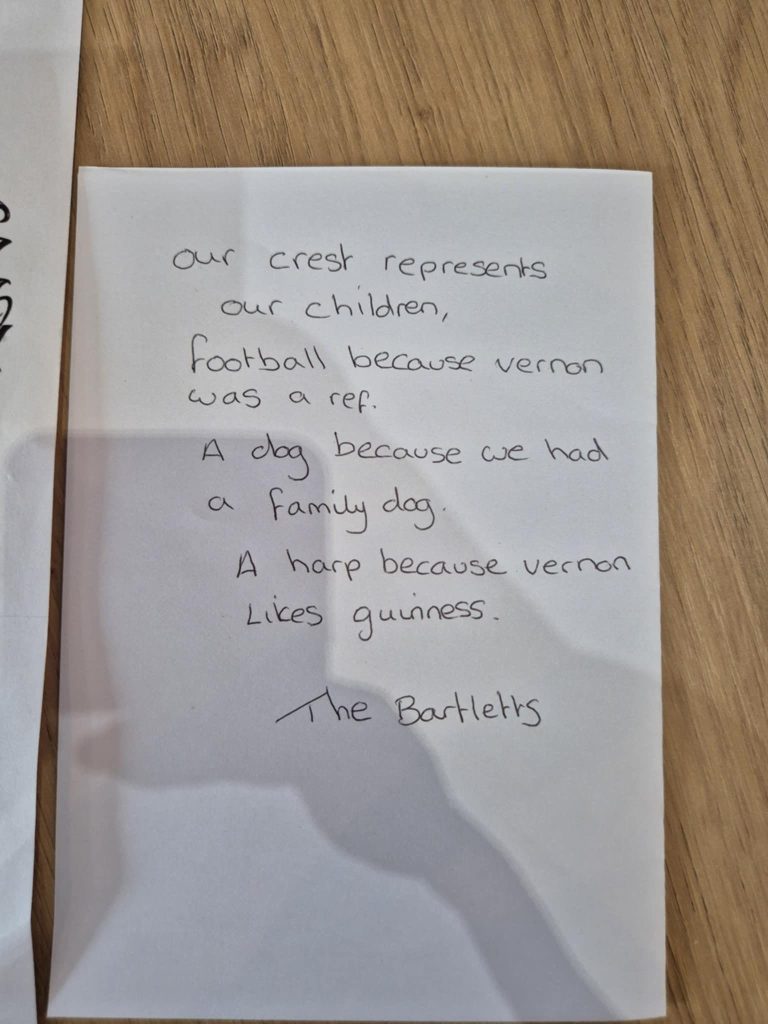 our crest represents
our children,
football because vernon
was a ref.
A dog because we had
a family dog.
A harp because vernon
Likes guinness.
The Bartletts